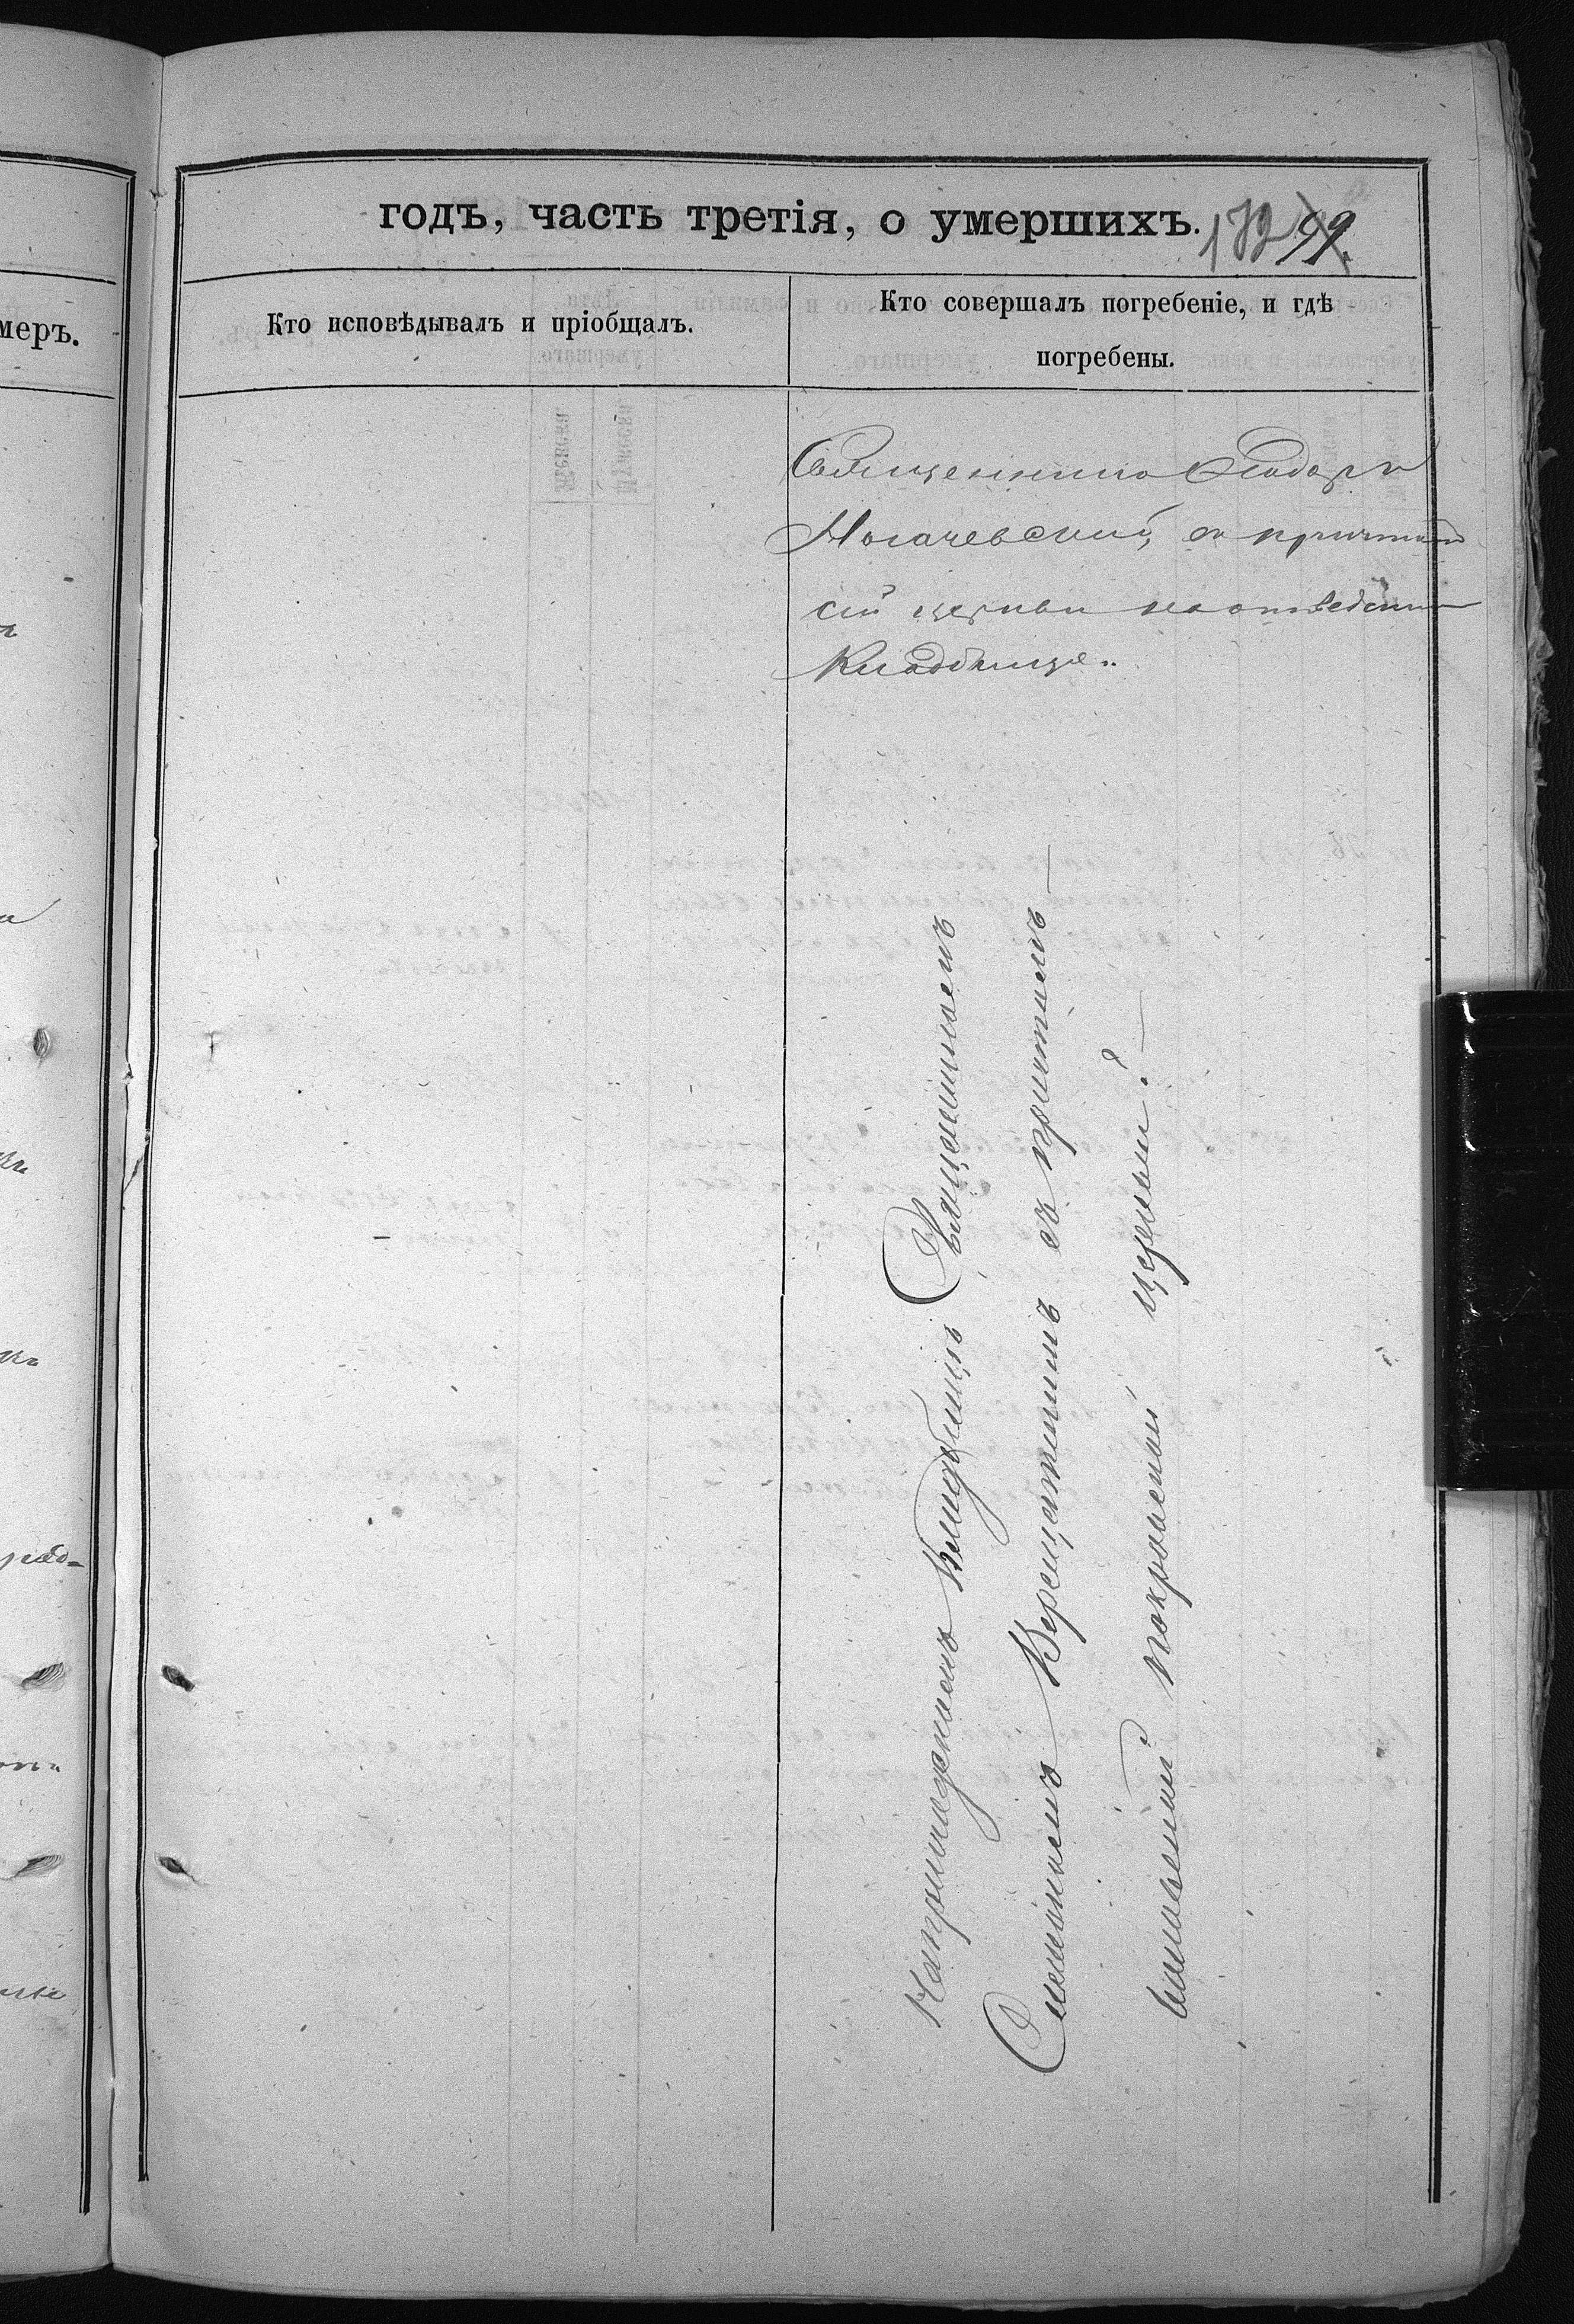 годъ, часть третія, о умершихъ.
172 99.
меръ.
Кто исповѣдывалъ и пріобщалъ.
Кто совершалъ погребеніе, и гдѣ
погребены.
Священникъ Ѳеодоръ
Могачевскій, съ причтомъ
сей церкви на отведенномъ
Кладбище..
На приходскомъ кладбищѣ Священникомъ
Симеономъ Верещатинымъ съ причтомъ
покровской церкви.